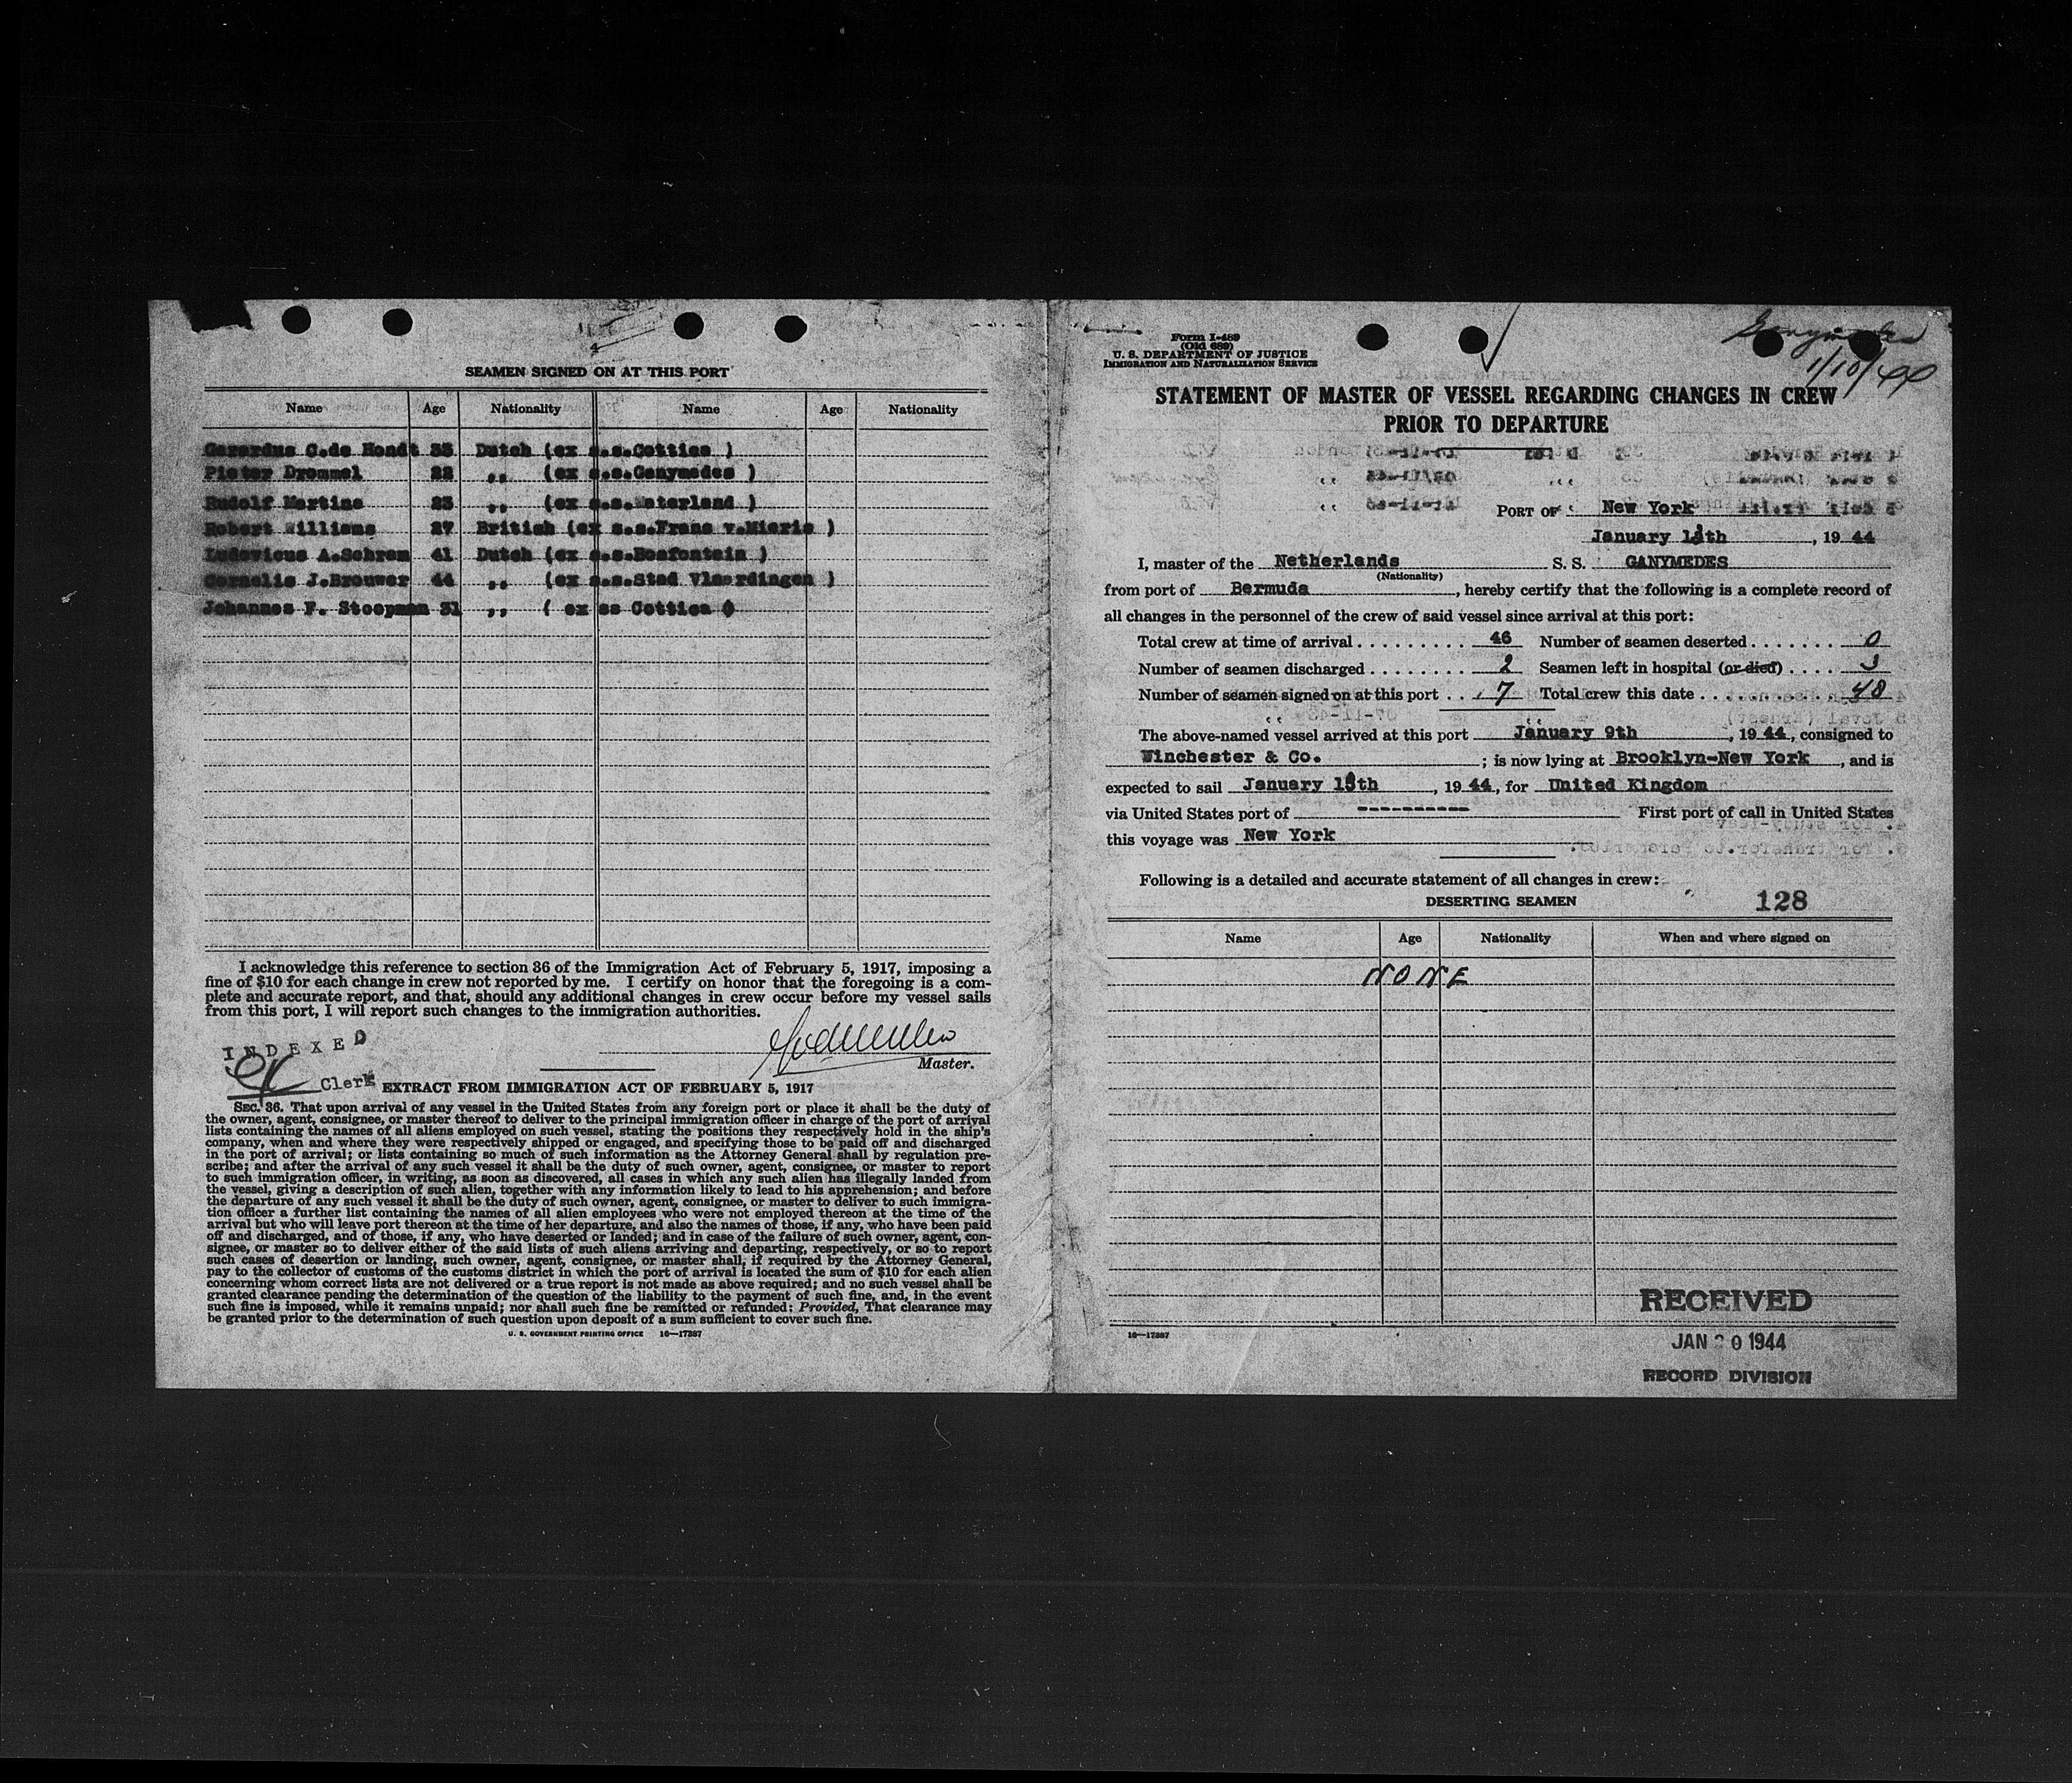 SEAMEN SIGNED ON AT THIS PORT
Name Age Nationality Name Age Nationality
Gerardus C.de Hondt 33 Dutch (ex s.s.Cottica )
Pieter Drommel 22 ,, (ex s.s.Ganymedes )
Rudolf Martins 23 ,, (ex s.s.Waterland )
Robert Williams 27 British (ex s.s.Frans v.Mieris )
Ludovicus A.Schram 41 Dutch (ex s.s.Bosfontein )
Cornelis J.Brouwer 44 ,, (ex s.s.Stad Vlaardingen )
Johannes F. Stoopman 31 ,, ( ex ss Cottica )
I acknowledge this reference to section 36 of the Immigration Act of February 5, 1917, imposing a
fine of $10 for each change in crew not reported by me. I certify on honor that the foregoing is a com-
plete and accurate report, and that, should any additional changes in crew occur before my vessel sails
from this port, I will report such changes to the immigration authorities.
INDEXED
Master.
Clerk
EXTRACT FROM IMMIGRATION ACT OF FEBRUARY 5, 1917
SEC. 36. That upon arrival of any vessel in the United States from any foreign port or place it shall be the duty of
the owner, agent, consignee, or master thereof to deliver to the principal immigration officer in charge of the port of arrival
lists containing the names of all aliens employed on such vessel, stating the positions they respectively hold in the ship's
company, when and where they were respectively shipped or engaged, and specifying those to be paid off and discharged
in the port of arrival; or lists containing so much of such information as the Attorney General shall by regulation pre-
scribe; and after the arrival of any such vessel it shall be the duty of such owner, agent, consignee, or master to report
to such immigration officer, in writing, as soon as discovered, all cases in which any such alien has illegally landed from
the vessel, giving a description of such alien, together with any information likely to lead to his apprehension; and before
the departure of any such vessel it shall be the duty of such owner, agent, consignee, or master to deliver to such immigra-
tion officer a further list containing the names of all alien employees who were not employed thereon at the time of the
arrival but who will leave port thereon at the time of her departure, and also the names of those, if any, who have been paid
off and discharged, and of those, if any, who have deserted or landed; and in case of the failure of such owner, agent, con-
signee, or master so to deliver either of the said lists of such aliens arriving and departing, respectively, or so to report
such cases of desertion or landing, such owner, agent, consignee, or master shall, if required by the Attorney General,
pay to the collector of customs of the customs district in which the port of arrival is located the sum of $10 for each alien
concerning whom correct lists are not delivered or a true report is not made as above required; and no such vessel shall be
granted clearance pending the determination of the question of the liability to the payment of such fine, and, in the event
such fine is imposed, while it remains unpaid; nor shall such fine be remitted or refunded: Provided, That clearance may
be granted prior to the determination of such question upon deposit of a sum sufficient to cover such fine.
U. S. GOVERNMENT PRINTING OFFICE 16—17287
Form I-489
(Old 689)
U. S. DEPARTMENT OF JUSTICE
IMMIGRATION AND NATURALIZATION SERVICE
Ganymedes
1/10/44
STATEMENT OF MASTER OF VESSEL REGARDING CHANGES IN CREW
PRIOR TO DEPARTURE
PORT OF New York
January 14th, 19 44
I, master of the Netherlands S. S. GANYMEDES
(Nationality)
from port of Bermuda, hereby certify that the following is a complete record of
all changes in the personnel of the crew of said vessel since arrival at this port:
Total crew at time of arrival 46 Number of seamen deserted 0
Number of seamen discharged 2 Seamen left in hospital (or died) 3
Number of seamen signed on at this port 7 Total crew this date 48
The above-named vessel arrived at this port January 9th, 19 44, consigned to
Winchester & Co. ; is now lying at Brooklyn-New York, and is
expected to sail January 15th, 19 44, for United Kingdom
via United States port of ---------- First port of call in United States
this voyage was New York
Following is a detailed and accurate statement of all changes in crew:
DESERTING SEAMEN
128
Name Age Nationality When and where signed on
NONE
RECEIVED
16—17287
JAN 20 1944
RECORD DIVISION